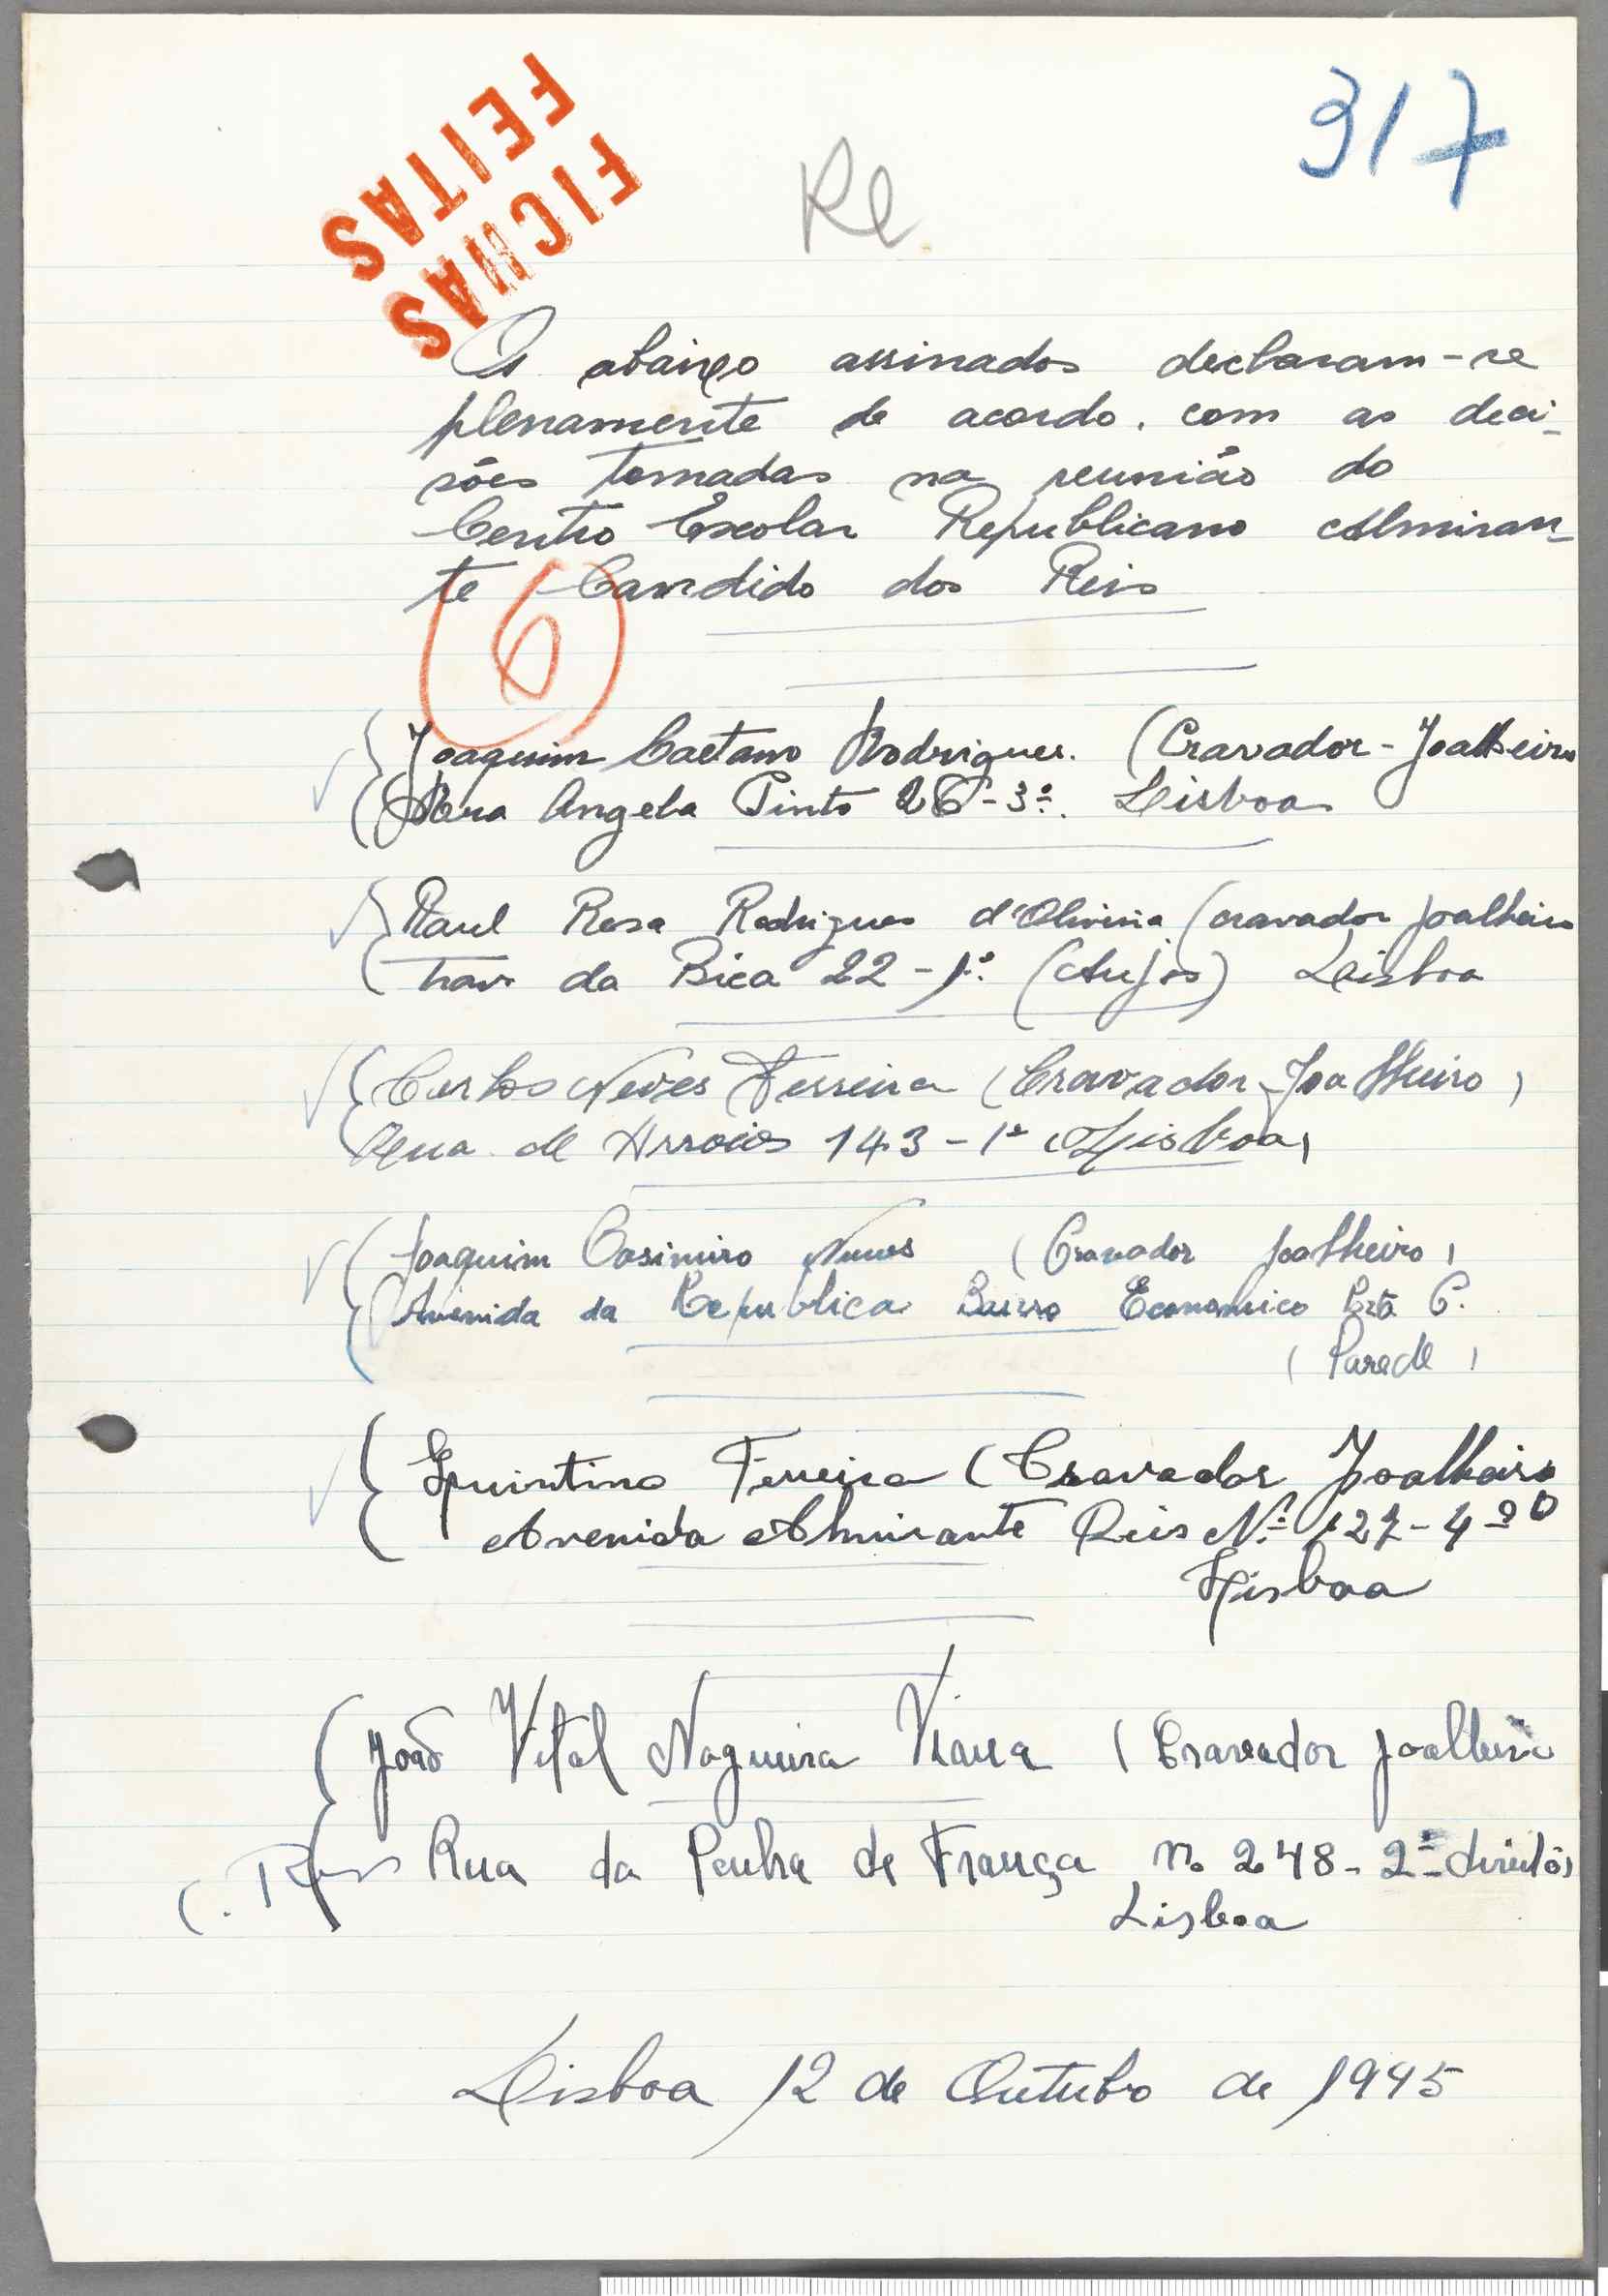 317
FICHAS
FEITAS
Re
Os abaixo assinados declaram-se
plenamente de acordo. com as deci-
sões tomadas na reunião do
Centro Escolar Republicano Almiran-
te Candido dos Reis
6
Joaquim Caetano Rodrigues. (Cravador-Joalheiro
Rua Angela Pinto 26-3º. Lisboa
Raul Rosa Rodrigues d'Oliveira (cravador joalheiro
Trav. da Bica 22-1º. (Anjos) Lisboa
Carlos Neves Ferreira (Cravador-Joalheiro)
Rua de Arroios 143-1º (Lisboa)
Joaquim Casimiro Nunes (Cravador joalheiro)
Avenida da Republica Bairro Economico
(Parede)
Quintino Ferreira (Cravador Joalheiro
Avenida Almirante Reis Nº 127-4º
Lisboa
João Vital Nogueira Viana (Cravador joalheiro
Rua da Penha de França n. 248-2º
Lisboa
Lisboa 12 de Outubro de 1945